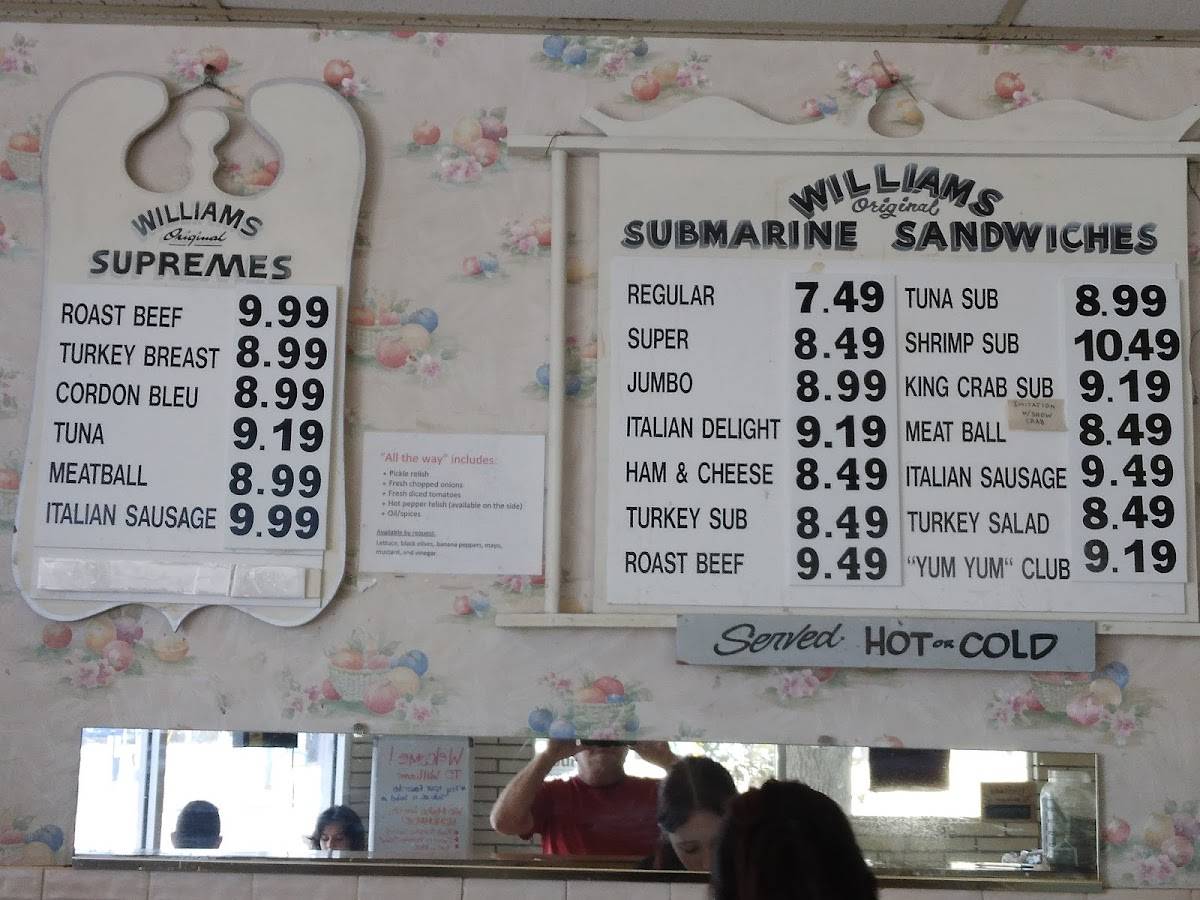 WILLIAMS
Original
SUPREMES
ROAST BEEF 9.99
TURKEY BREAST 8.99
CORDON BLEU 8.99
TUNA 9.19
MEATBALL 8.99
ITALIAN SAUSAGE 9.99
"All the way" includes:
• Pickle relish
• Fresh chopped onions
• Fresh diced tomatoes
• Hot pepper relish (available on the side)
• Oil/spices
Available by request:
Lettuce, black olives, banana peppers, mayo,
mustard, and vinegar.
WILLIAMS
Original
SUBMARINE SANDWICHES
REGULAR 7.49
SUPER 8.49
JUMBO 8.99
ITALIAN DELIGHT 9.19
HAM & CHEESE 8.49
TURKEY SUB 8.49
ROAST BEEF 9.49
TUNA SUB 8.99
SHRIMP SUB 10.49
KING CRAB SUB 9.19
IMITATION
W/SNOW
CRAB
MEAT BALL 8.49
ITALIAN SAUSAGE 9.49
TURKEY SALAD 8.49
"YUM YUM" CLUB 9.19
Served HOT or COLD
Welcome!
TO William